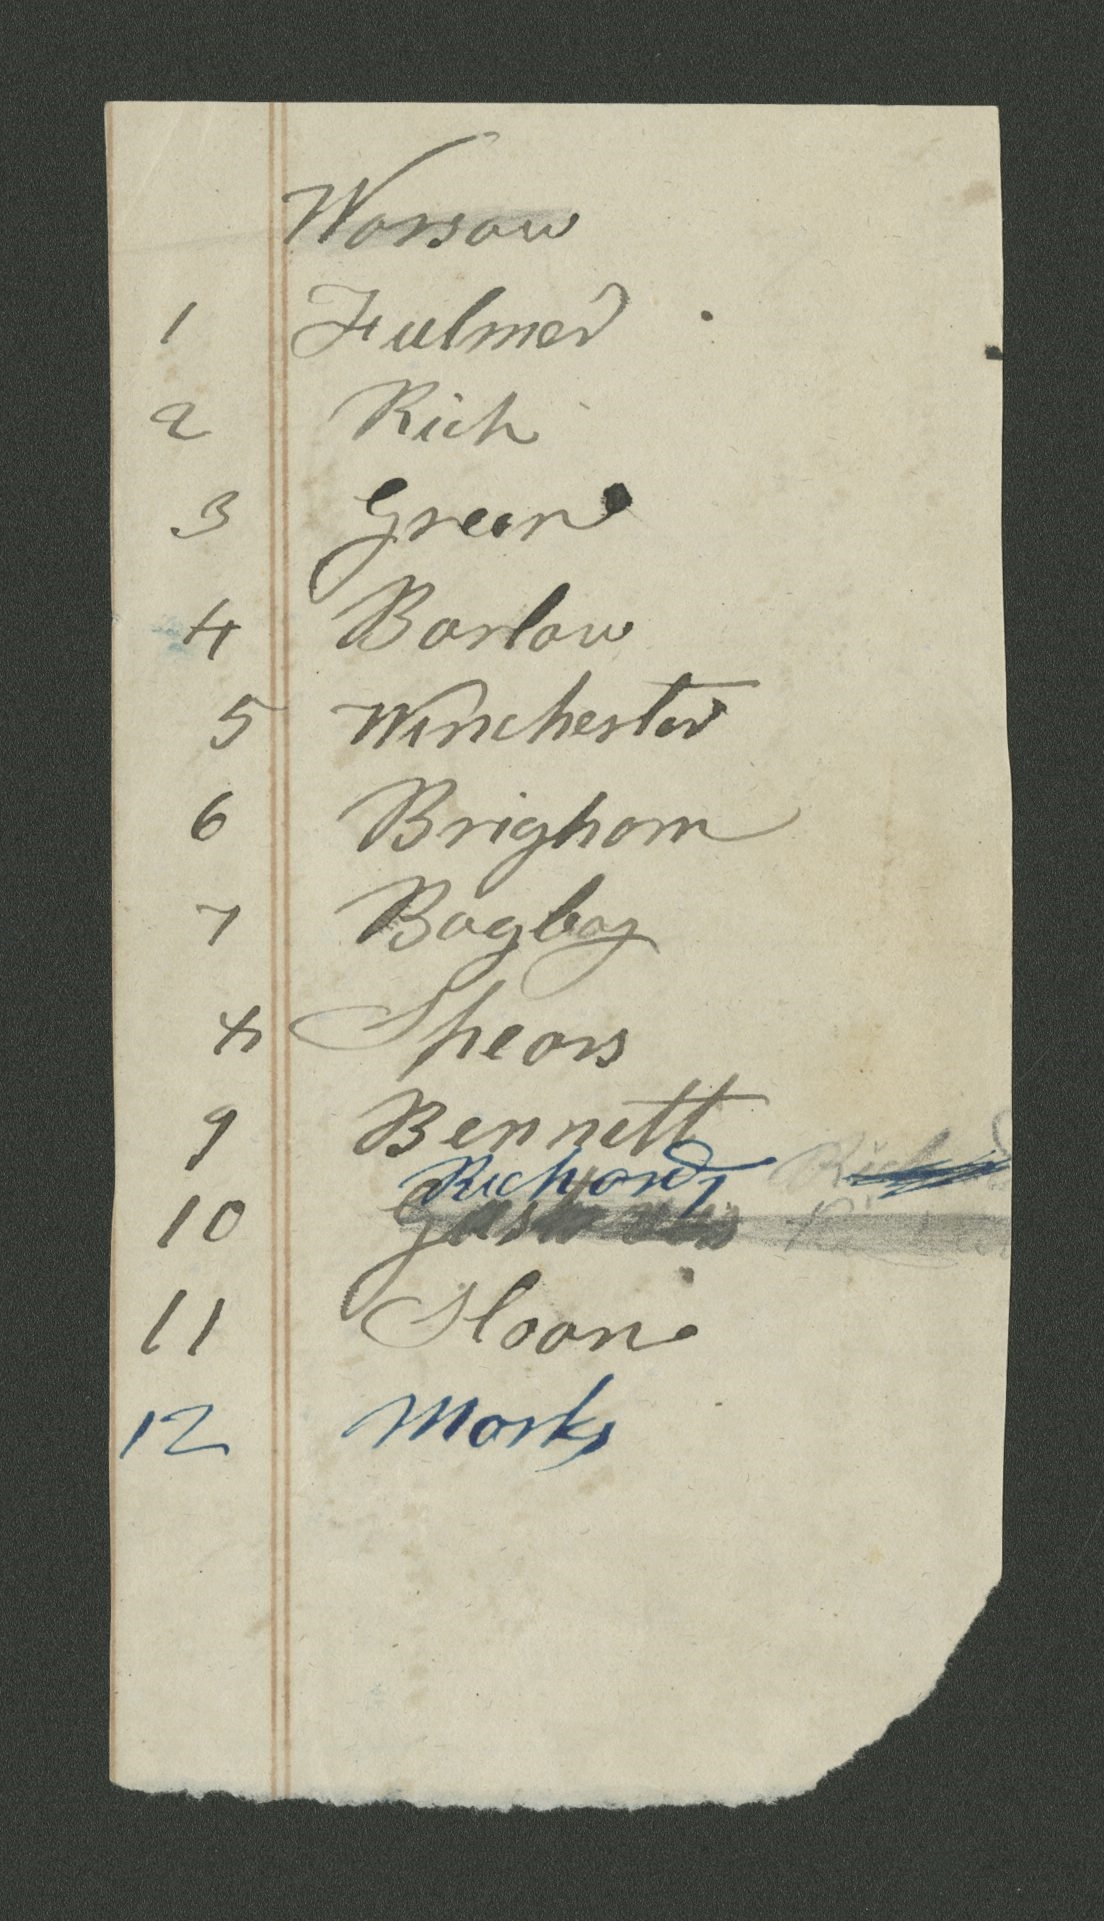 Warsaw
1 Fulmer
2 Rich
3 Green
4 Barlow
5 Winchester
6 Brigham
7 Bagbay
8 Spears
9 Bennett
Richards
10
11 Sloan
12 Marks